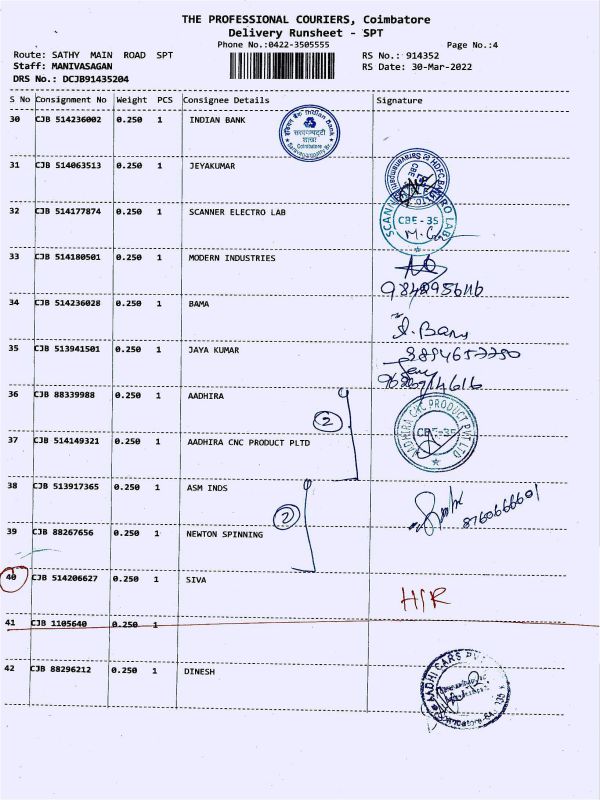 THE PROFESSIONAL COURIERS, Coimbatore
Delivery Runsheet - SPT
Phone No.:0422-3505555 Page No.:4
Route: SATHY MAIN ROAD SPT RS No.: 914352
Staff: MANIVASAGAN RS Date: 30-Mar-2022
DRS No.: DCJB91435204
S No Consignment No Weight PCS Consignee Details Signature
30 CJB 514236002 0.250 1 INDIAN BANK
31 CJB 514063513 0.250 1 JEYAKUMAR
32 CJB 514177874 0.250 1 SCANNER ELECTRO LAB
SCANNER ELECTRO LAB
CBE-35
33 CJB 514180501 0.250 1 MODERN INDUSTRIES
34 CJB 514236028 0.250 1 BAMA
35 CJB 513941501 0.250 1 JAYA KUMAR
36 CJB 88339988 0.250 1 AADHIRA
2
AADHIRA CNC PRODUCT PVT LTD
CBE-35
37 CJB 514149321 0.250 1 AADHIRA CNC PRODUCT PLTD
38 CJB 513917365 0.250 1 ASM INDS
8760666601
2
39 CJB 88267656 0.250 1 NEWTON SPINNING
40 CJB 514206627 0.250 1 SIVA
H/R
41 CJB 1105640 0.250 1
42 CJB 88296212 0.250 1 DINESH